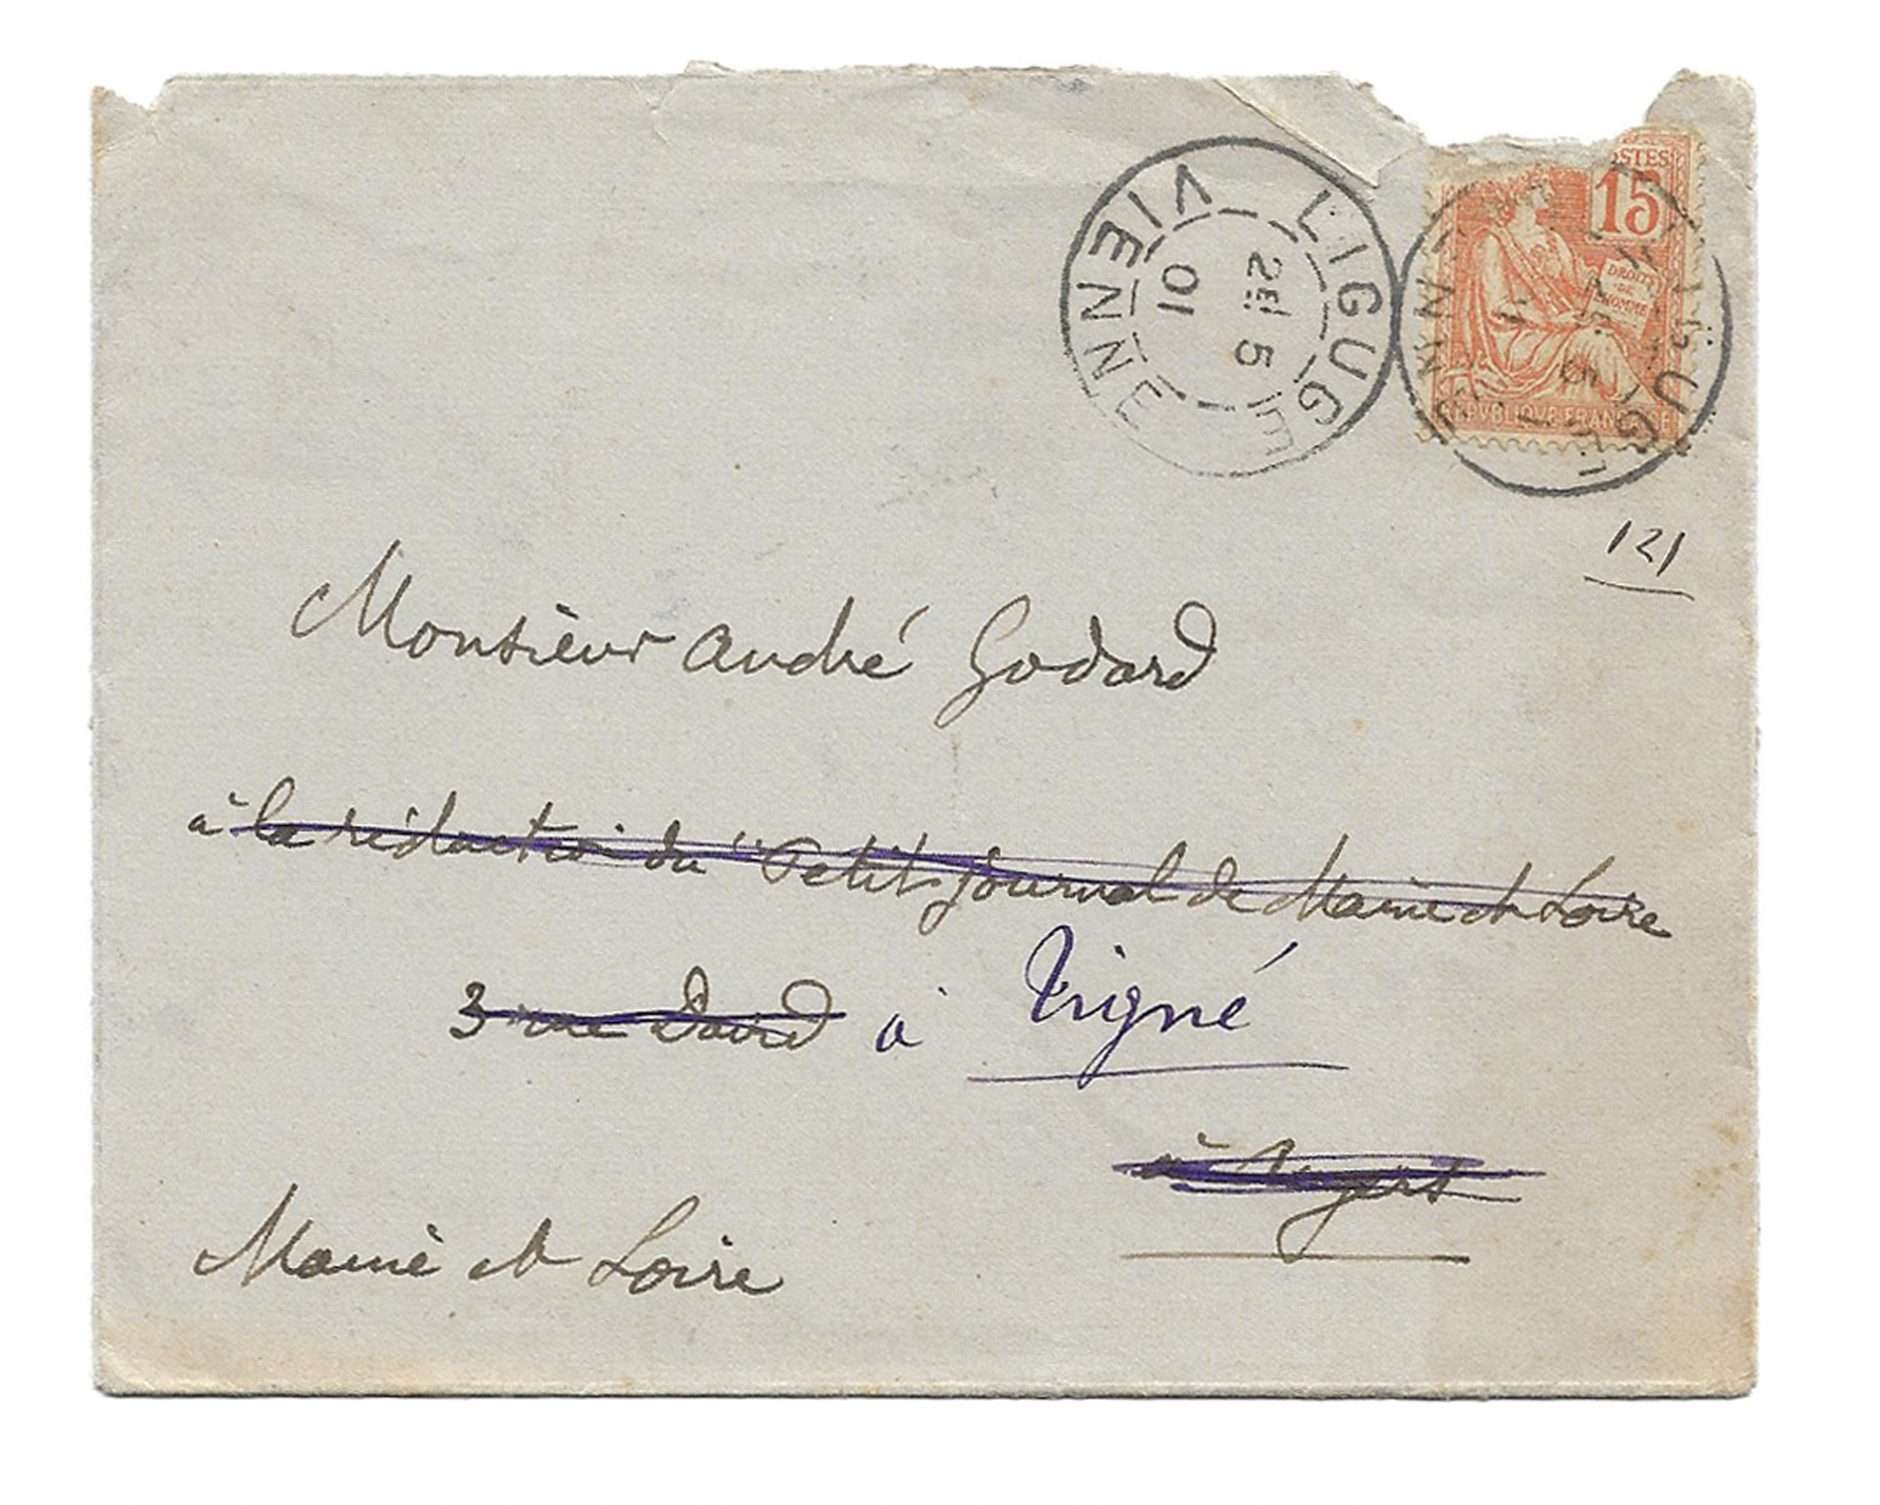 LIGUGE
2E 5
01
VIENNE
POSTES
15
DROITS DE L'HOMME
REPVBLIQVE FRANCAISE
121
Monsieur André Godard
à la rédaction du "Petit Journal de Maine et Loire
3 rue David à Tigné
à Angers
Maine et Loire